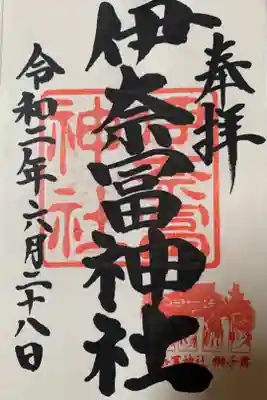 奉拝
伊奈冨神社
令和二年六月二十八日
伊奈冨神社